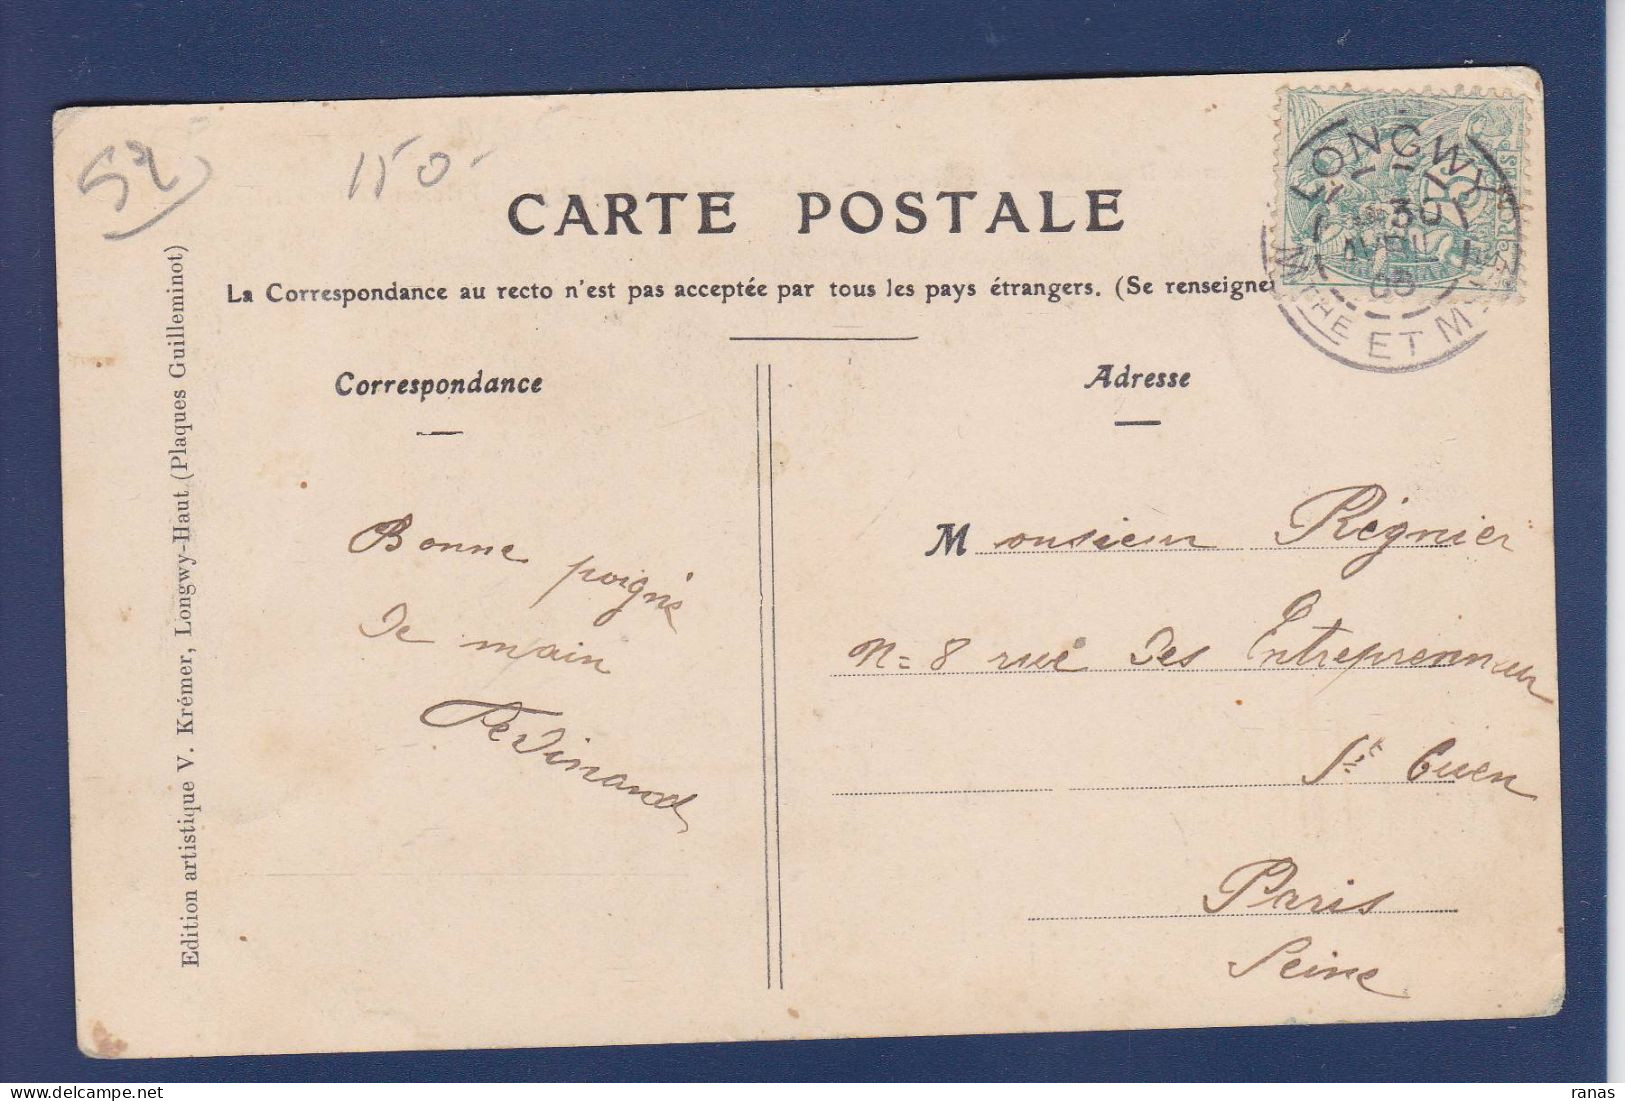 52
150-
CARTE POSTALE
La Correspondance au recto n'est pas acceptée par tous les pays étrangers. (Se renseigne
Correspondance
Adresse
Edition artistique V. Krémer, Longwy-Haut (Plaques Guilleminot)
LONGWY
30
AVRIL
MTHE ET M
Bonne poigné
de main
Ferdinand
Monsieur Régnier
N= 8 rue des Entreprenneur
St Ouen
Paris
Seine
ranas